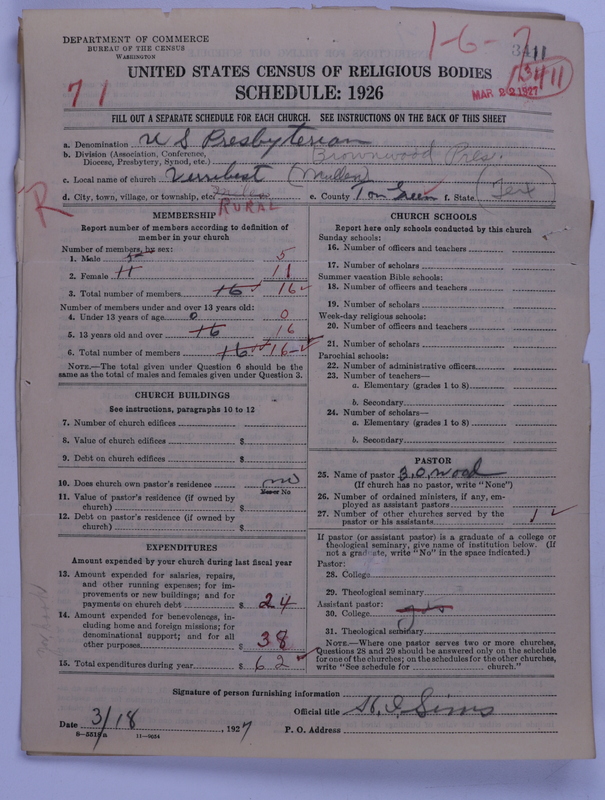 DEPARTMENT OF COMMERCE
BUREAU OF THE CENSUS
WASHINGTON
1-6-
3411
3411
71
MAR 22 1927
UNITED STATES CENSUS OF RELIGIOUS BODIES
SCHEDULE: 1926
FILL OUT A SEPARATE SCHEDULE FOR EACH CHURCH. SEE INSTRUCTIONS ON THE BACK OF THIS SHEET
a. Denomination U S Presbyterian
b. Division (Association, Conference, Diocese, Presbytery, Synod, etc.) Brownwood Pres.
c. Local name of church Verribest (Mullen)
d. City, town, village, or township, etc. RURAL e. County Tom Green f. State (Tex)
R
MEMBERSHIP
Report number of members according to definition of
member in your church
Number of members, by sex:
1. Male 5 5
2. Female 11 11
3. Total number of members 16 16
Number of members under and over 13 years old:
4. Under 13 years of age 0 0
5. 13 years old and over 16 16
6. Total number of members 16 16
NOTE.—The total given under Question 6 should be
same as the total of males and females given under Question 3.
CHURCH BUILDINGS
See instructions, paragraphs 10 to 12
7. Number of church edifices
8. Value of church edifices $
9. Debt on church edifices $
10. Does church own pastor's residence no
Yes or No
11. Value of pastor's residence (if owned by
church) $
12. Debt on pastor's residence (if owned by
church) $
EXPENDITURES
Amount expended by your church during last fiscal year
13. Amount expended for salaries, repairs,
and other running expenses; for im-
provements or new buildings; and for
payments on church debt $ 24
14. Amount expended for benevolences, in-
cluding home and foreign missions; for
denominational support; and for all
other purposes $ 38
15. Total expenditures during year $ 62
CHURCH SCHOOLS
Report here only schools conducted by this church
Sunday schools:
16. Number of officers and teachers
17. Number of scholars
Summer vacation Bible schools:
18. Number of officers and teachers
19. Number of scholars
Week-day religious schools:
20. Number of officers and teachers
21. Number of scholars
Parochial schools:
22. Number of administrative officers
23. Number of teachers—
a. Elementary (grades 1 to 8)
b. Secondary
24. Number of scholars—
a. Elementary (grades 1 to 8)
b. Secondary
PASTOR
25. Name of pastor B.O. Wood
(If church has no pastor, write "None")
26. Number of ordained ministers, if any, em-
ployed as assistant pastors
27. Number of other churches served by the
pastor or his assistants 1
If pastor (or assistant pastor) is a graduate of a college or
theological seminary, give name of institution below. (If
not a graduate, write "No" in the space indicated.)
Pastor:
28. College
29. Theological seminary
Assistant pastor:
30. College
31. Theological seminary
NOTE.—Where one pastor serves two or more churches,
Questions 28 and 29 should be answered only on the schedule
for one of the churches; on the schedules for the other churches,
write "See schedule for church."
Signature of person furnishing information
Official title H. I. Sims
Date 3/18, 1927 P. O. Address
8-5518a 11-9034